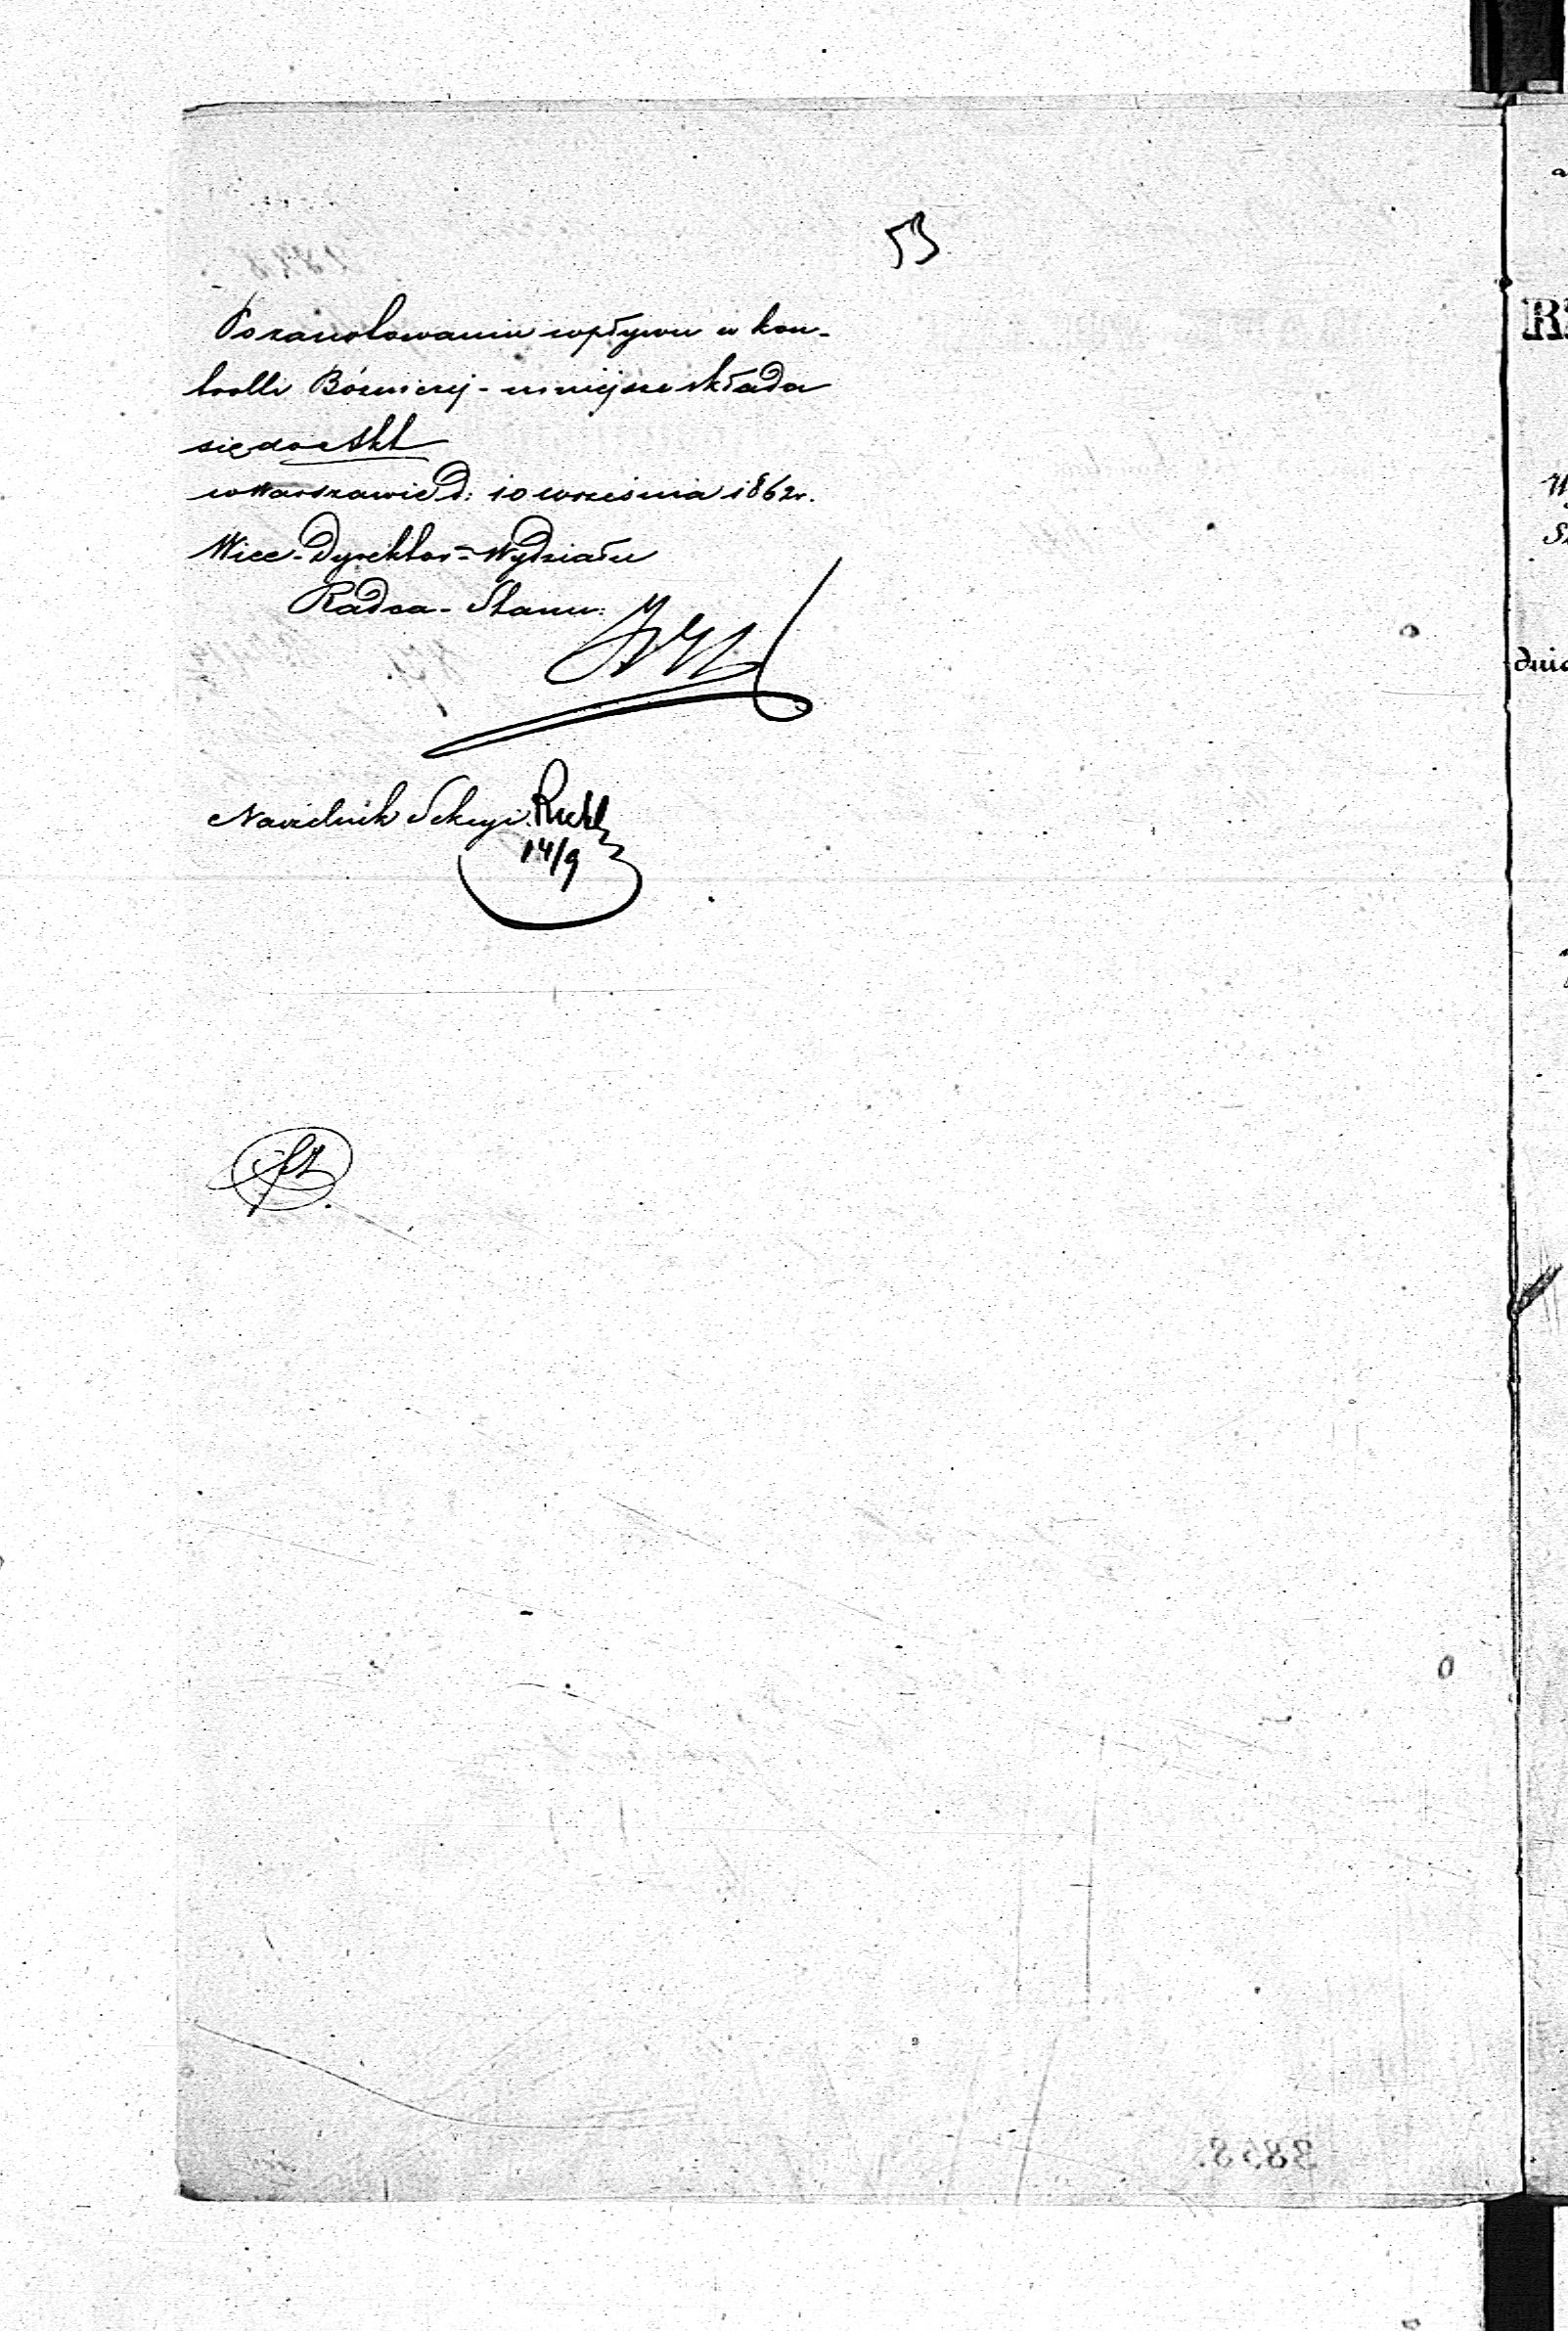 53
Po zanotowaniu wpływu w kon-
trolli Bóżniczej - niniejsze składa
się do Akt
w Warszawie d: 10 września 1862r.
Wice-Dyrektor-Wydziału
Radca-Stanu:
Naczelnik Sekcyi
14/9